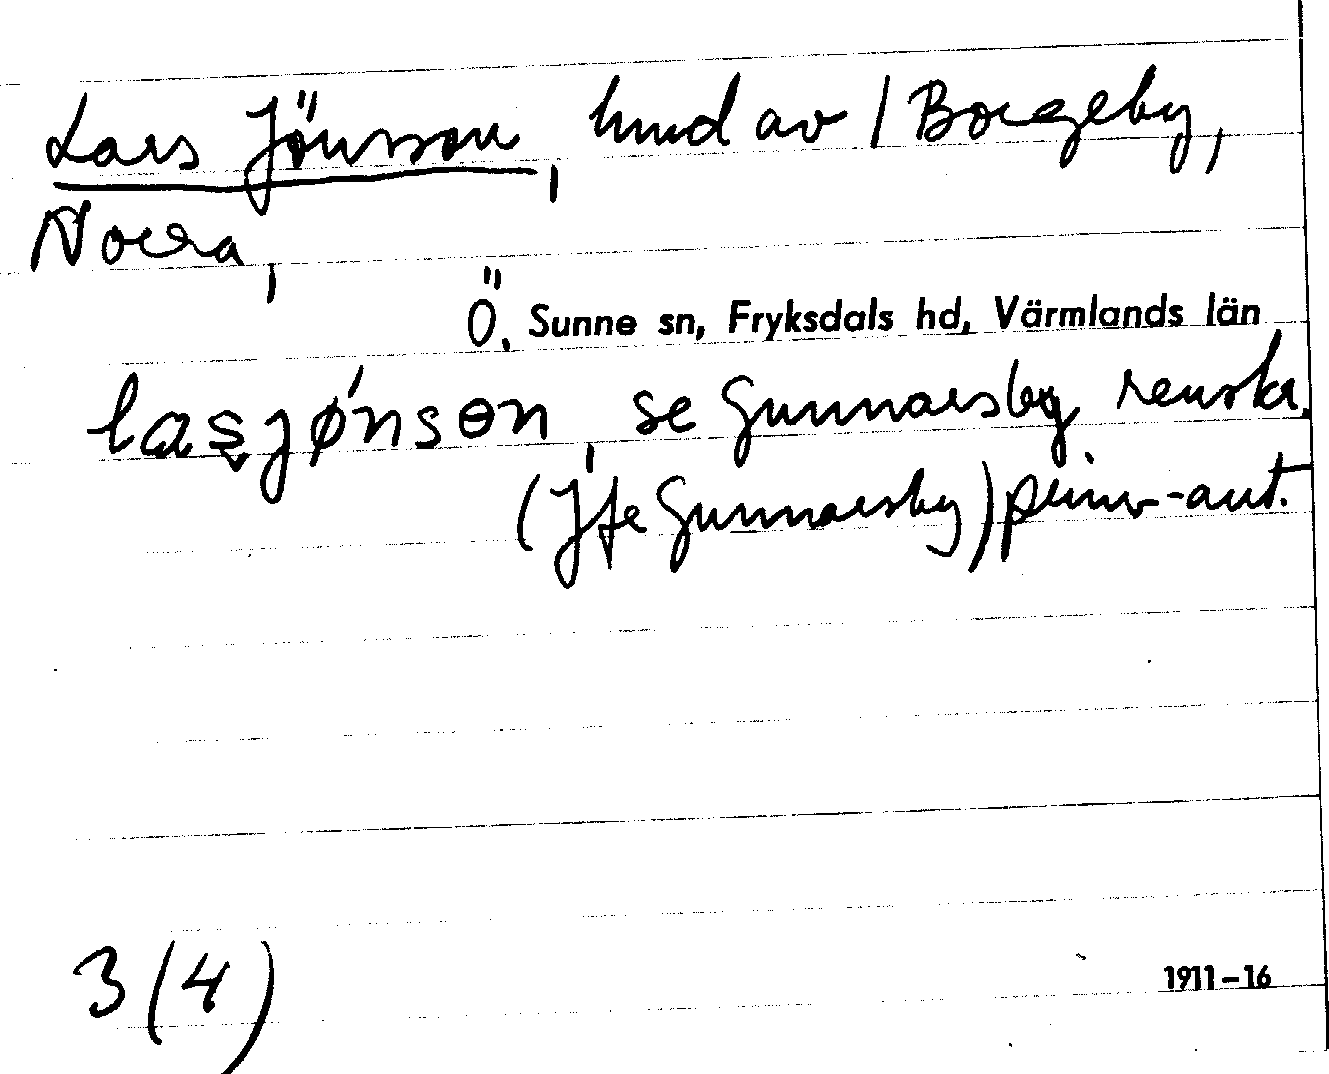 Lars Jönsson, hmd av / Borgeby,
Norra,
Ö. Sunne sn, Fryksdals hd, Värmlands län
lasjønsɵn, se Gunnarsby renskr.
(Jfr Gunnarsby) prim-ant.
3 (4)
1911-16